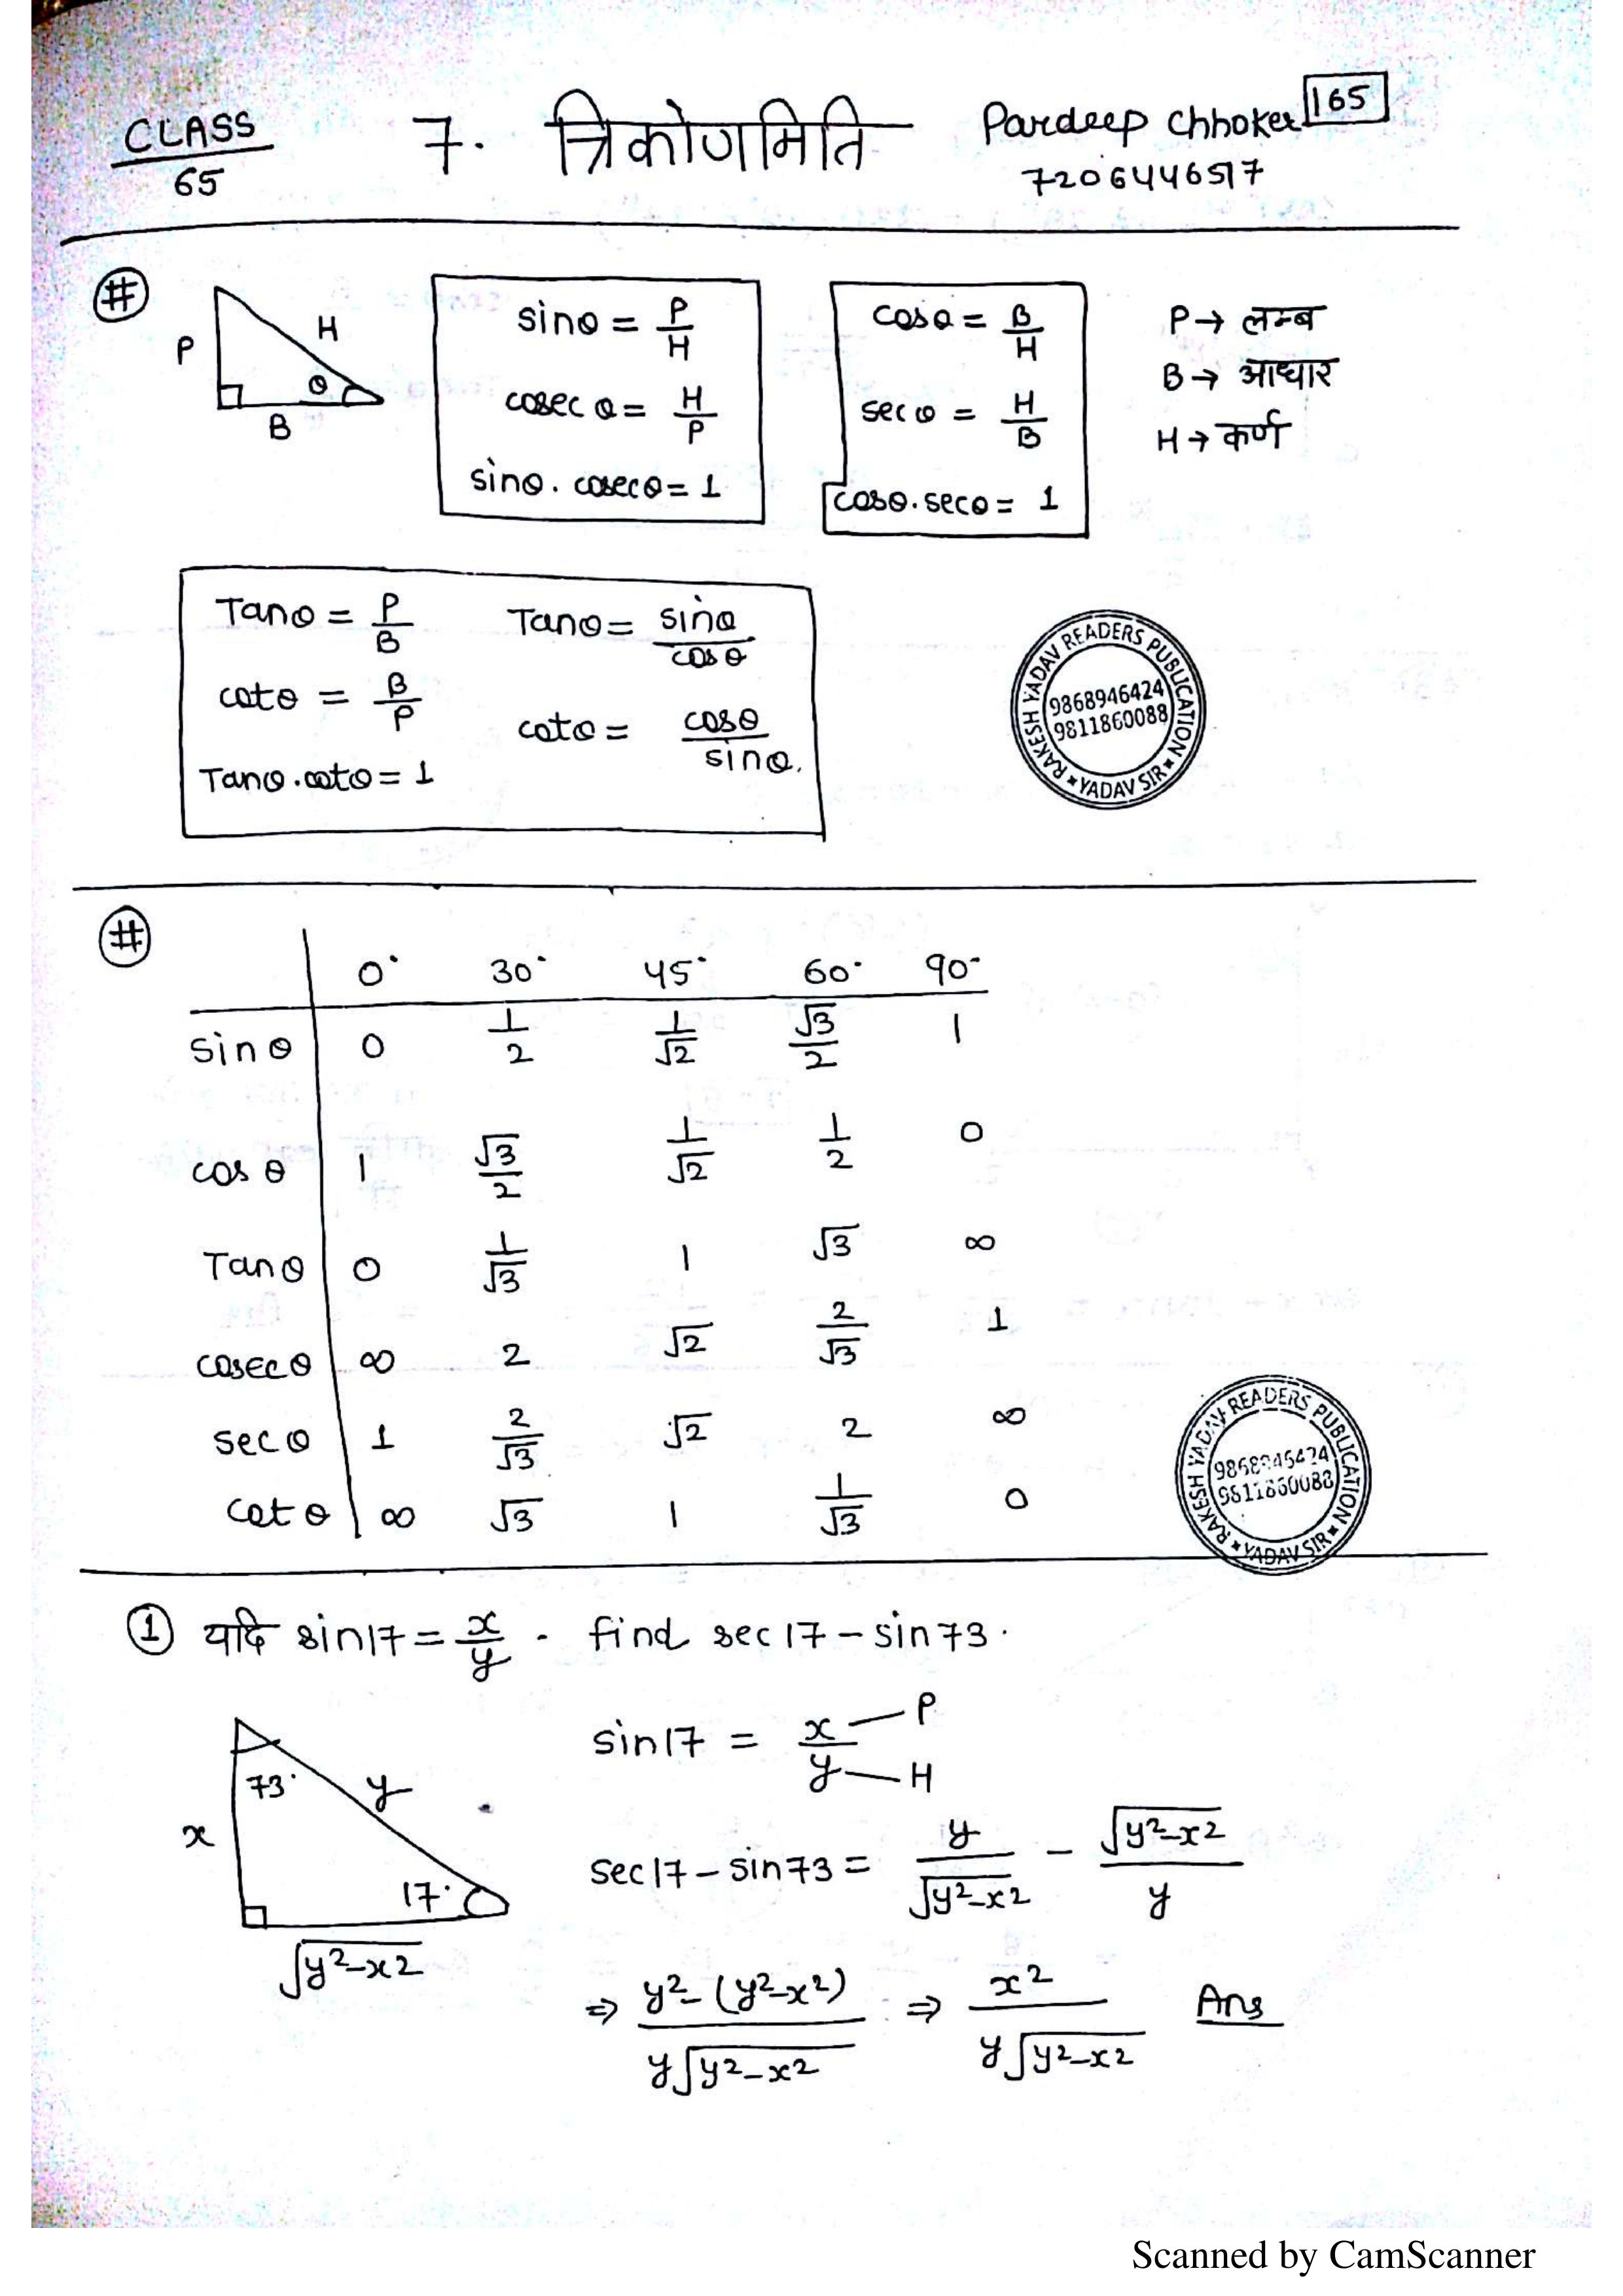 CLASS 65
7. त्रिकोणमिति
Pardeep Chhoker 165
7206446517
#
P H θ B
sinθ = P/H
cosecθ = H/P
sinθ. cosecθ = 1
cosθ = B/H
secθ = H/B
cosθ.secθ = 1
P → लम्ब
B → आधार
H → कर्ण
Tanθ = P/B
cotθ = B/P
Tanθ.cotθ = 1
Tanθ = sinθ/cosθ
cotθ = cosθ/sinθ.
RAKESH YADAV READERS PUBLICATION * YADAV SIR *
9868946424
9811860088
#
0° 30° 45° 60° 90°
sinθ 0 1/2 1/√2 √3/2 1
cosθ 1 √3/2 1/√2 1/2 0
Tanθ 0 1/√3 1 √3 ∞
cosecθ ∞ 2 √2 2/√3 1
secθ 1 2/√3 √2 2 ∞
cotθ ∞ √3 1 1/√3 0
RAKESH YADAV READERS PUBLICATION * YADAV SIR *
9868946424
9811860088
① यदि sin17 = x/y . find sec17 - sin73.
73° y x 17° √y²-x²
sin17 = x/y P H
sec17 - sin73 = y/√y²-x² - √y²-x²/y
⇒ y²-(y²-x²)/y√y²-x² ⇒ x²/y√y²-x² Ans
Scanned by CamScanner